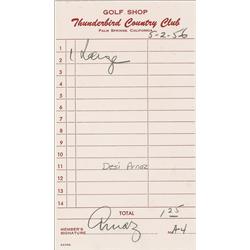 GOLF SHOP
Thunderbird Country Club
PALM SPRINGS, CALIFORNIA
5-2-56
1 1 Large
2
3
4
5
6
7
8
9
10
11 Desi Arnaz
12
13
14
TOTAL 1 25
MEMBER'S
SIGNATURE Arnaz A-4